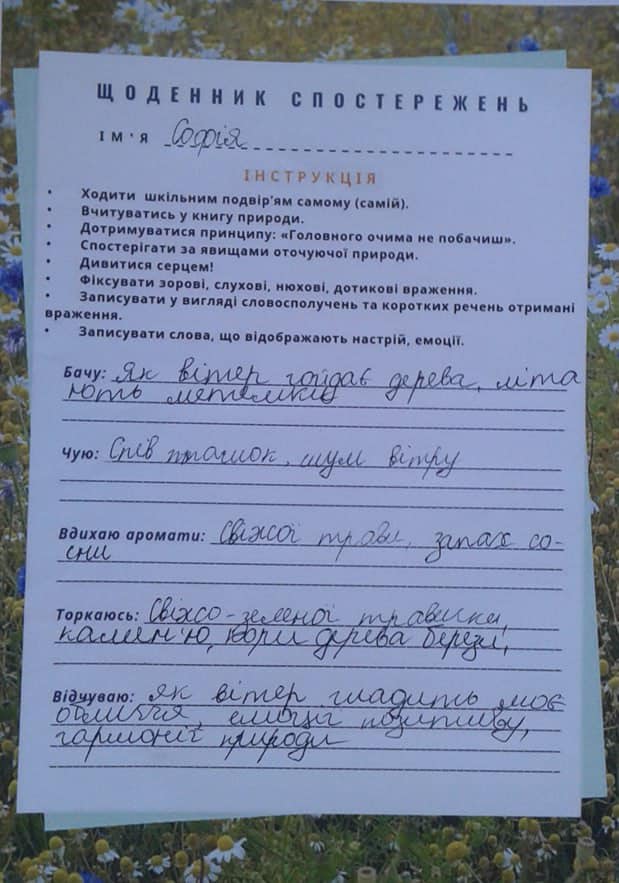 ЩОДЕННИК СПОСТЕРЕЖЕНЬ
ІМ'Я Софія
ІНСТРУКЦІЯ
• Ходити шкільним подвір'ям самому (самій).
• Вчитуватись у книгу природи.
• Дотримуватися принципу: «Головного очима не побачиш».
• Спостерігати за явищами оточуючої природи.
• Дивитися серцем!
• Фіксувати зорові, слухові, нюхові, дотикові враження.
• Записувати у вигляді словосполучень та коротких речень отримані
враження.
• Записувати слова, що відображають настрій, емоції.
Бачу: Як вітер гойдає дерева, літа
ють метелики
Чую: Спів пташок, шум вітру
Вдихаю аромати: Свіжої трави, запах со-
сни
Торкаюсь: Свіжо-зеленої травинки,
камен'ю, кори дерева берези,
Відчуваю: Як вітер гладить моє
обличчя, емоції позитиву,
гармонії природи